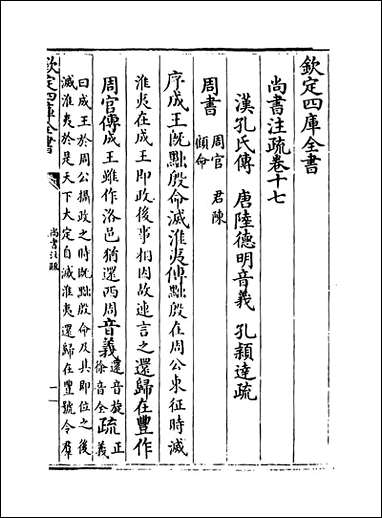 欽定四庫全書
尚書注疏卷十七
漢孔氏傳 唐陸德明音義 孔頴達疏
周書 周官 君陳 顧命
序成王既黜殷命滅淮夷傳黜殷在周公東征時滅
淮夷在成王即政後事相因故連言之還歸在豐作
周官傳成王雖作洛邑猶還西周音義還音旋徐音全疏正義
曰成王於周公攝政之時既黜殷命及其即位之後
滅淮夷於是天下大定自滅淮夷還歸在豐號令羣
欽定四庫全書
尚書注疏
一